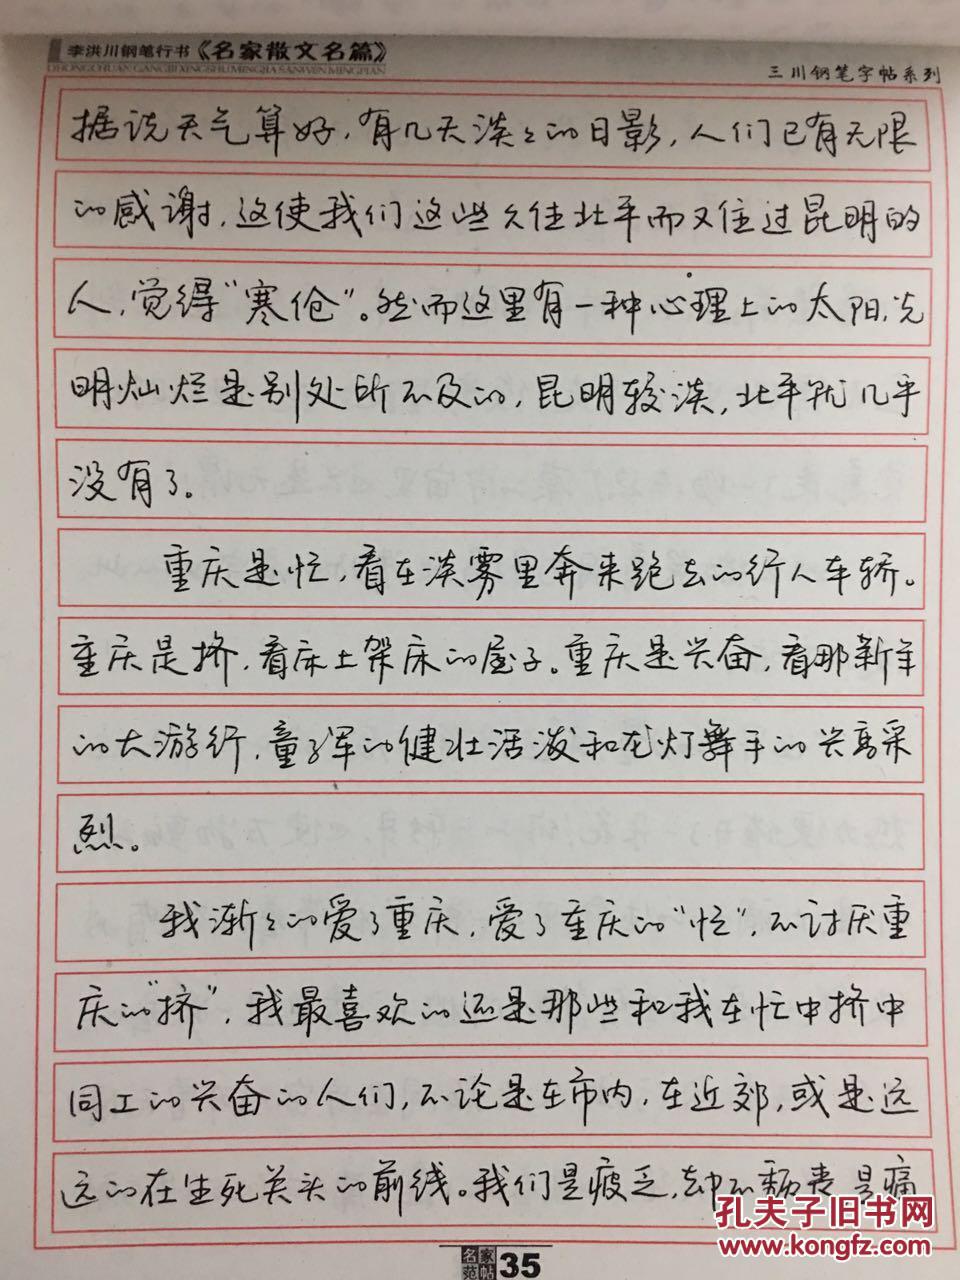 李洪川钢笔行书《名家散文名篇》
LIHONGCHUAN GANGBIXINGSHU MINGJIA SANWEN MINGPIAN
三川钢笔字帖系列
据说天气算好，有几天淡々的日影，人们已有无限
的感谢，这使我们这些久住北平而又住过昆明的
人，觉得“寒伧”。然而这里有一种心理上的太阳，光
明灿烂是别处所不及的，昆明较淡，北平就几乎
没有了。
重庆是忙，看在淡雾里奔来跑去的行人车轿。
重庆是挤，看床上架床的屋子。重庆是兴奋，看那新年
的大游行，童子军的健壮活泼和龙灯舞手的兴高采
烈。
我渐々的爱了重庆，爱了重庆的“忙”，不讨厌重
庆的“挤”，我最喜欢的还是那些和我在忙中挤中
同工的兴奋的人们，不论是在市内，在近郊，或是远
远的在生死关头的前线。我们是疲乏，却不颓丧，是痛
孔夫子旧书网
www.kongfz.com
名家范帖 35